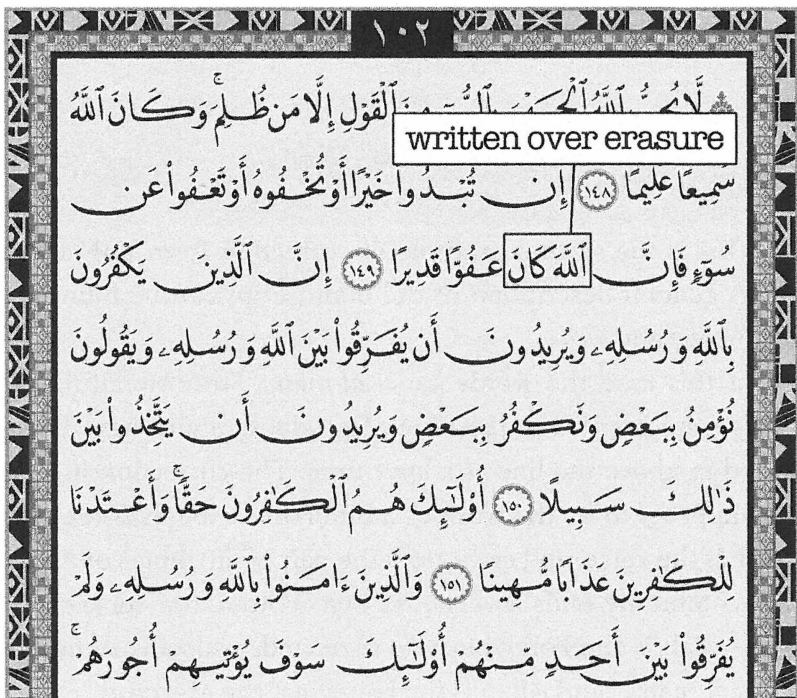 ١٠٢
لَّا ٱللَّهُ ٱلْقَوْلِ إِلَّا مَن ظُلِمَ ۚ وَكَانَ ٱللَّهُ
written over erasure
سَمِيعًا عَلِيمًا ١٤٨ إِن تُبْدُوا۟ خَيْرًا أَوْ تُخْفُوهُ أَوْ تَعْفُوا۟ عَن
سُوٓءٍ فَإِنَّ ٱللَّهَ كَانَ عَفُوًّا قَدِيرًا ١٤٩ إِنَّ ٱلَّذِينَ يَكْفُرُونَ
بِٱللَّهِ وَرُسُلِهِۦ وَيُرِيدُونَ أَن يُفَرِّقُوا۟ بَيْنَ ٱللَّهِ وَرُسُلِهِۦ وَيَقُولُونَ
نُؤْمِنُ بِبَعْضٍ وَنَكْفُرُ بِبَعْضٍ وَيُرِيدُونَ أَن يَتَّخِذُوا۟ بَيْنَ
ذَٰلِكَ سَبِيلًا ١٥٠ أُو۟لَـٰٓئِكَ هُمُ ٱلْكَـٰفِرُونَ حَقًّا ۚ وَأَعْتَدْنَا
لِلْكَـٰفِرِينَ عَذَابًا مُّهِينًا ١٥١ وَٱلَّذِينَ ءَامَنُوا۟ بِٱللَّهِ وَرُسُلِهِۦ وَلَمْ
يُفَرِّقُوا۟ بَيْنَ أَحَدٍ مِّنْهُمْ أُو۟لَـٰٓئِكَ سَوْفَ يُؤْتِيهِمْ أُجُورَهُمْ ۗ